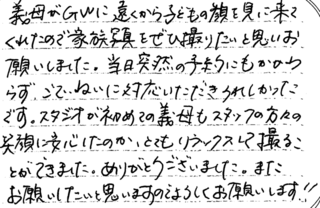 義母がGWに遠くから子どもの顔を見に来て
くれたので家族写真をぜひ撮りたいと思いお
願いしました。当日突然の予約にもかかわ
らず、ていねいに対応いただきうれしかった
です。スタジオが初めての義母もスタッフの方々の
笑顔に安心したのか、とてもリラックスして撮るこ
とができました。ありがとうございました。また
お願いしたいと思いますのでよろしくお願いします!!